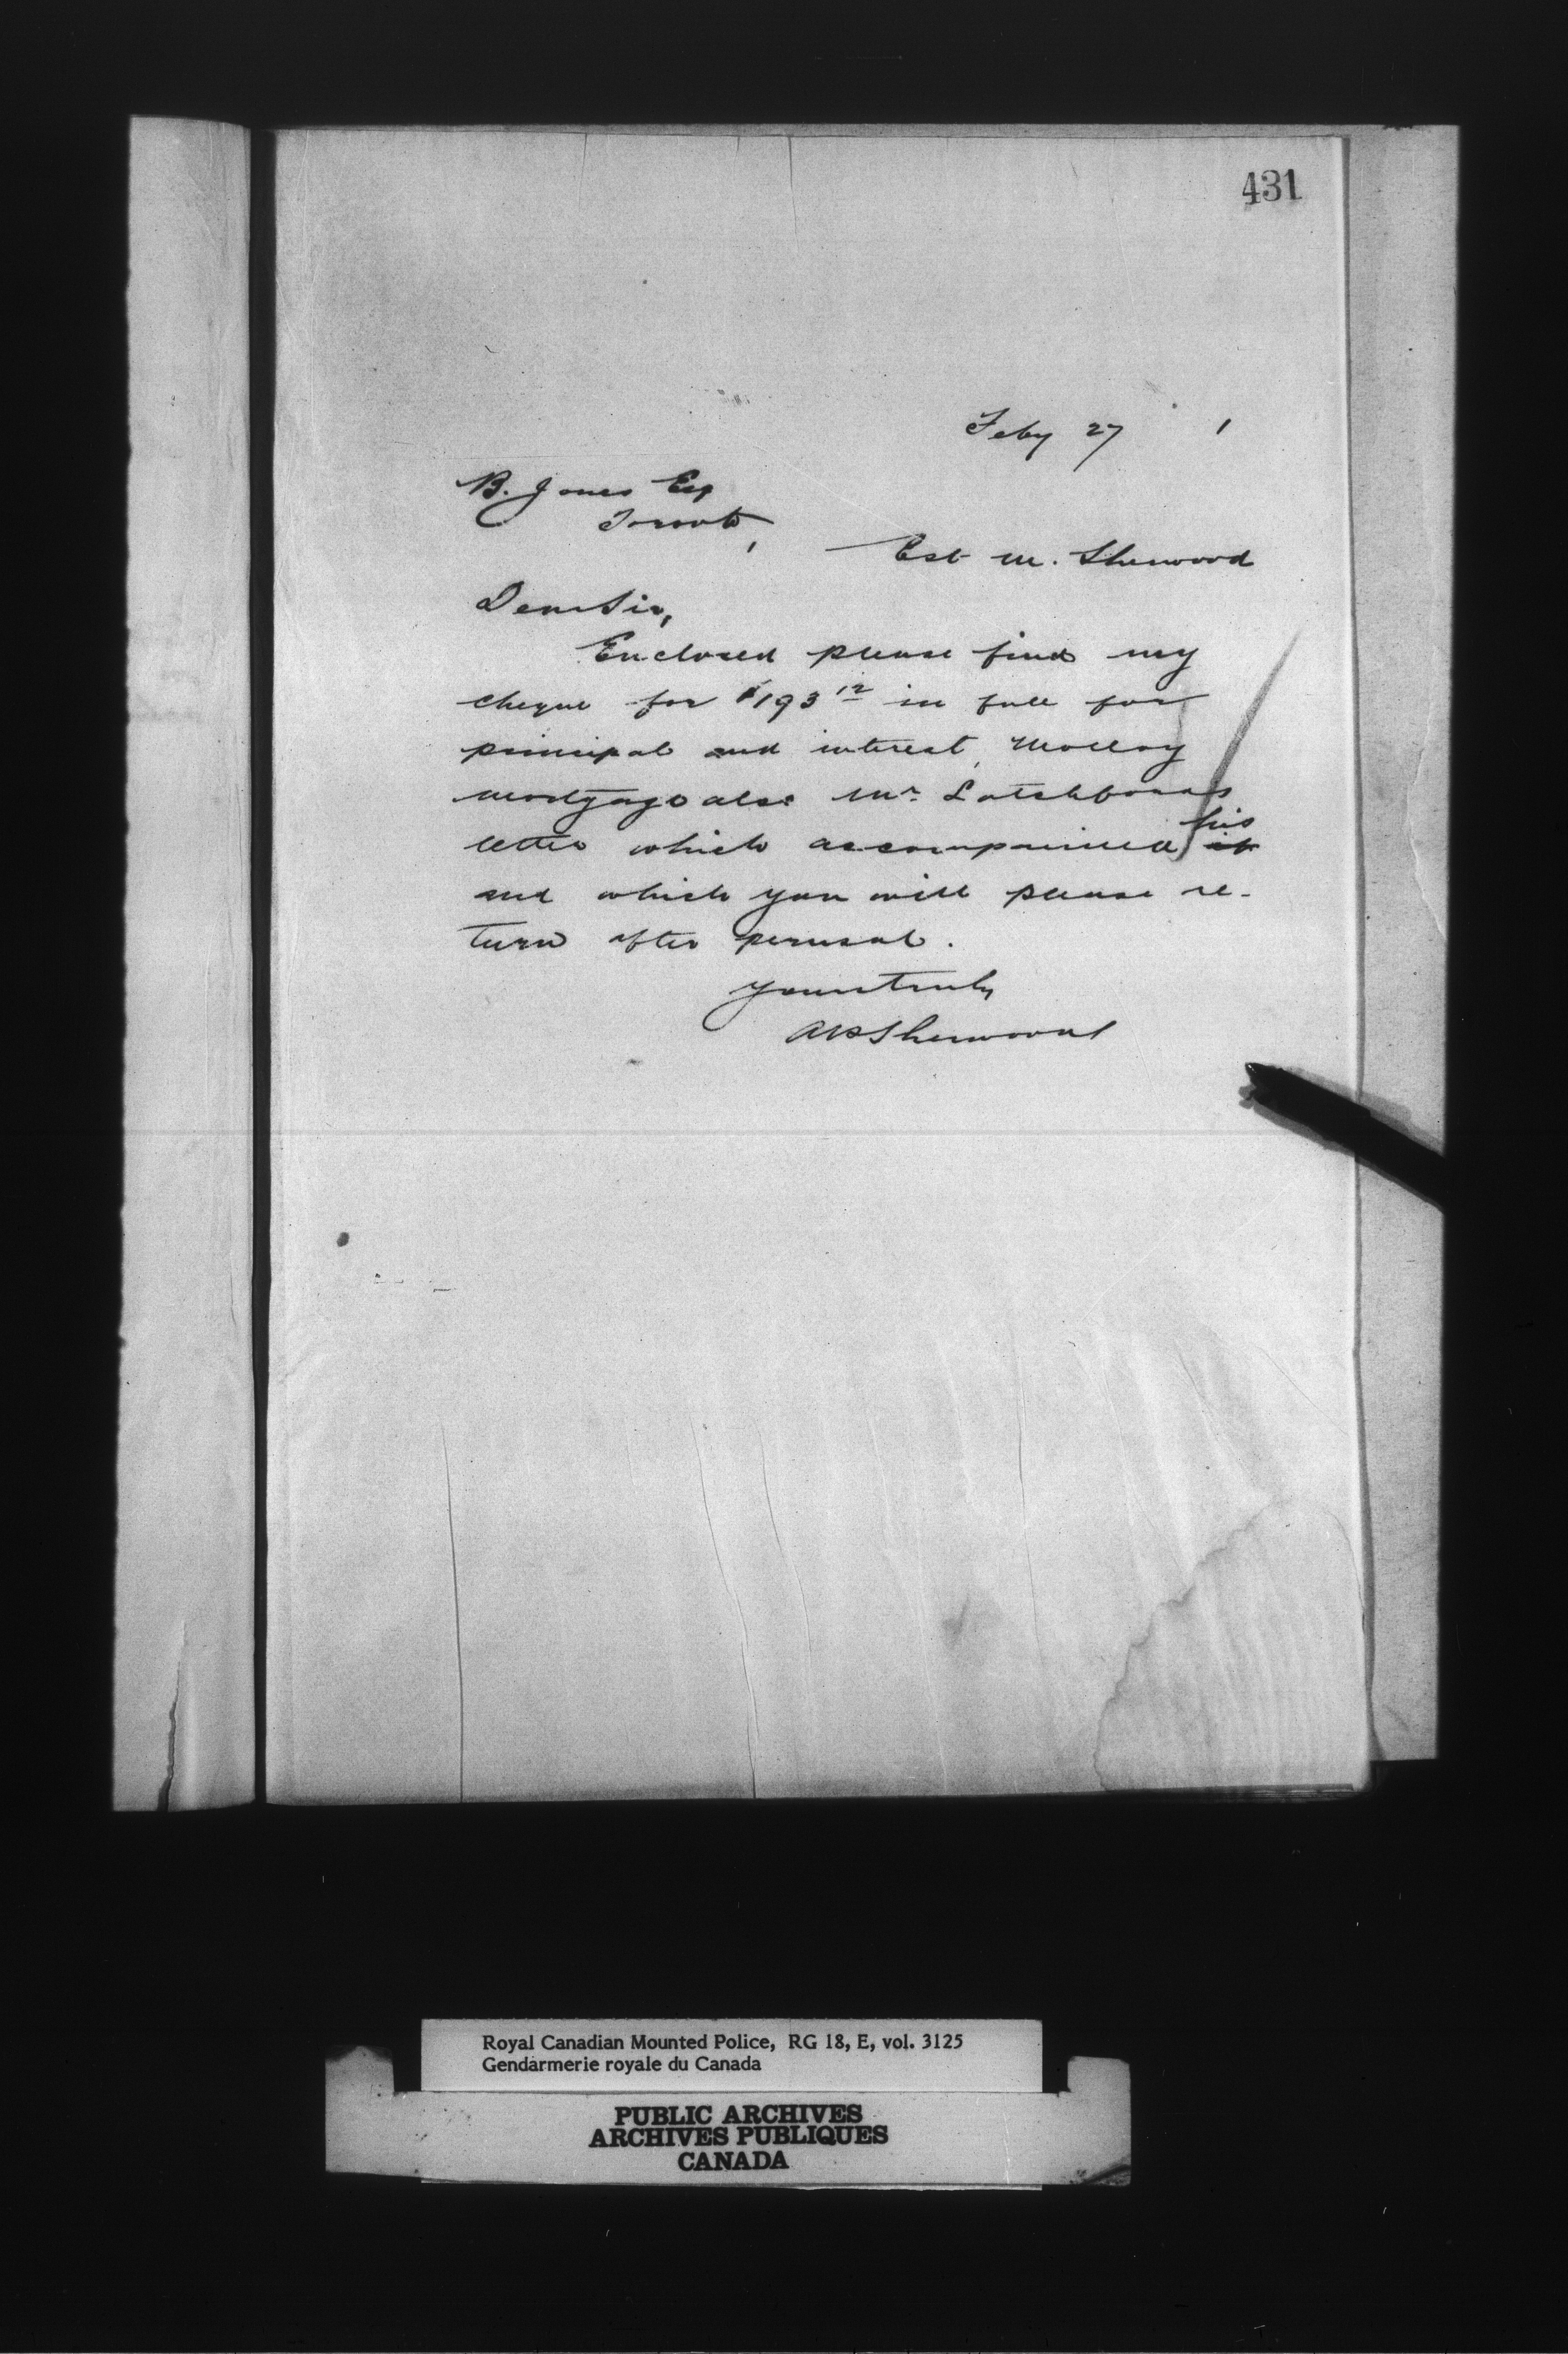 431
Feby 27 1
B. Jones Esq
Toronto,
Est M. Sherwood
Dear Sir,
Enclosed please find my
cheque for $193 12 in full for
principal and interest, Molloy
mortgage also Mr. Latchford's
letter which accompanied his it
and which you will please re-
turn after perusal.
Yours truly
AP Sherwood
Royal Canadian Mounted Police, RG 18, E, vol. 3125
Gendarmerie royale du Canada
PUBLIC ARCHIVES
ARCHIVES PUBLIQUES
CANADA